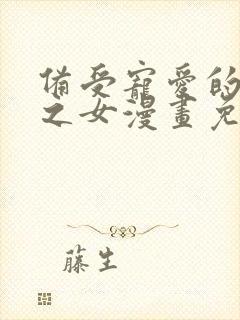 備受寵愛的
之女漫畫免
藤生